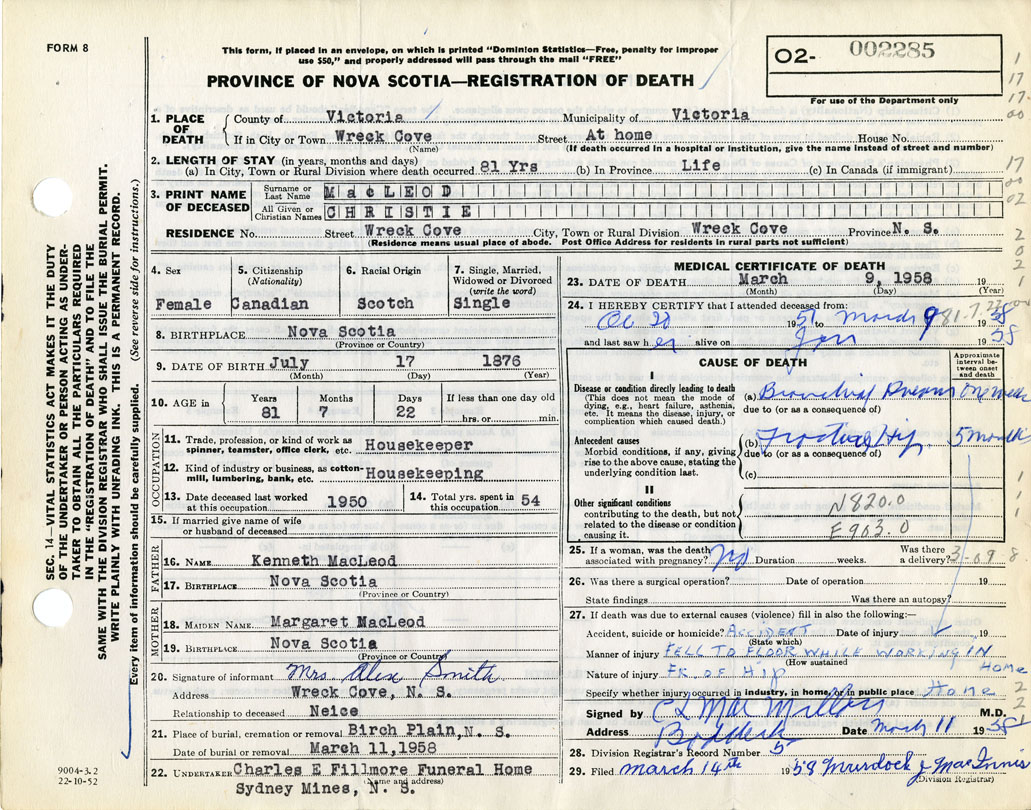 FORM 8
This form, if placed in an envelope, on which is printed "Dominion Statistics—Free, penalty for improper
use $50," and properly addressed will pass through the mail "FREE"
PROVINCE OF NOVA SCOTIA—REGISTRATION OF DEATH
02- 002285
For use of the Department only
SEC. 14—VITAL STATISTICS ACT MAKES IT THE DUTY
OF THE UNDERTAKER OR PERSON ACTING AS UNDER-
TAKER TO OBTAIN ALL THE PARTICULARS REQUIRED
IN THE "REGISTRATION OF DEATH" AND TO FILE THE
SAME WITH THE DIVISION REGISTRAR WHO SHALL ISSUE THE BURIAL PERMIT.
WRITE PLAINLY WITH UNFADING INK. THIS IS A PERMANENT RECORD.
Every item of information should be carefully supplied. (See reverse side for instructions.)
1. PLACE OF DEATH County of Victoria Municipality of Victoria
If in City or Town Wreck Cove Street At home House No.
(Name) (If death occurred in a hospital or institution, give the name instead of street and number)
2. LENGTH OF STAY (in years, months and days)
(a) In City, Town or Rural Division where death occurred 81 Yrs (b) In Province Life (c) In Canada (if immigrant)
3. PRINT NAME OF DECEASED Surname or Last Name MacLEOD
All Given or Christian Names CHRISTIE
RESIDENCE No. Street Wreck Cove City, Town or Rural Division Wreck Cove Province N. S.
(Residence means usual place of abode. Post Office Address for residents in rural parts not sufficient)
4. Sex 5. Citizenship (Nationality) 6. Racial Origin 7. Single, Married, Widowed or Divorced (write the word)
Female Canadian Scotch Single
8. BIRTHPLACE Nova Scotia
(Province or Country)
9. DATE OF BIRTH July 17 1876
(Month) (Day) (Year)
10. AGE in Years Months Days If less than one day old
81 7 22 hrs. or min.
OCCUPATION
11. Trade, profession, or kind of work as spinner, teamster, office clerk, etc. Housekeeper
12. Kind of industry or business, as cotton-mill, lumbering, bank, etc. Housekeeping
13. Date deceased last worked at this occupation 1950 14. Total yrs. spent in this occupation 54
15. If married give name of wife or husband of deceased
FATHER
16. NAME Kenneth MacLeod
17. BIRTHPLACE Nova Scotia
(Province or Country)
MOTHER
18. MAIDEN NAME Margaret MacLeod
19. BIRTHPLACE Nova Scotia
(Province or Country)
20. Signature of informant Mrs Alex Smith
Address Wreck Cove, N. S.
Relationship to deceased Neice
21. Place of burial, cremation or removal Birch Plain, N. S.
Date of burial or removal March 11, 1958
22. UNDERTAKER Charles E Fillmore Funeral Home
(Name and address)
Sydney Mines, N. S.
9004-3.2
22-10-52
MEDICAL CERTIFICATE OF DEATH
23. DATE OF DEATH March 9, 1958 19
(Month) (Day) (Year)
24. I HEREBY CERTIFY that I attended deceased from:
Oc 20 1957 to March 9 1958
and last saw her alive on Jan 1958
CAUSE OF DEATH
Approximate interval between onset and death
I
Disease or condition directly leading to death
(This does not mean the mode of dying, e.g., heart failure, asthenia, etc. It means the disease, injury, or complication which caused death.)
(a) Bronchial One week
due to (or as a consequence of)
Antecedent causes
Morbid conditions, if any, giving rise to the above cause, stating the underlying condition last.
(b) Fractured Hip 5 month
due to (or as a consequence of)
(c)
II
Other significant conditions
contributing to the death, but not related to the disease or condition causing it.
N820.0
E903.0
25. If a woman, was the death associated with pregnancy? No Duration weeks. Was there a delivery?
26. Was there a surgical operation? Date of operation 19
State findings Was there an autopsy?
27. If death was due to external causes (violence) fill in also the following:—
Accident, suicide or homicide? ACCIDENT Date of injury 19
(State which)
Manner of injury FELL TO FLOOR WHILE WORKING IN HOME
(How sustained
Nature of injury FR OF HIP
Specify whether injury occurred in industry, in home, or in public place Home
Signed by C L MacMillan M.D.
Address Baddeck Date March 11 1958
28. Division Registrar's Record Number 5
29. Filed March 14th 1958 Murdock J MacInnis
(Division Registrar)